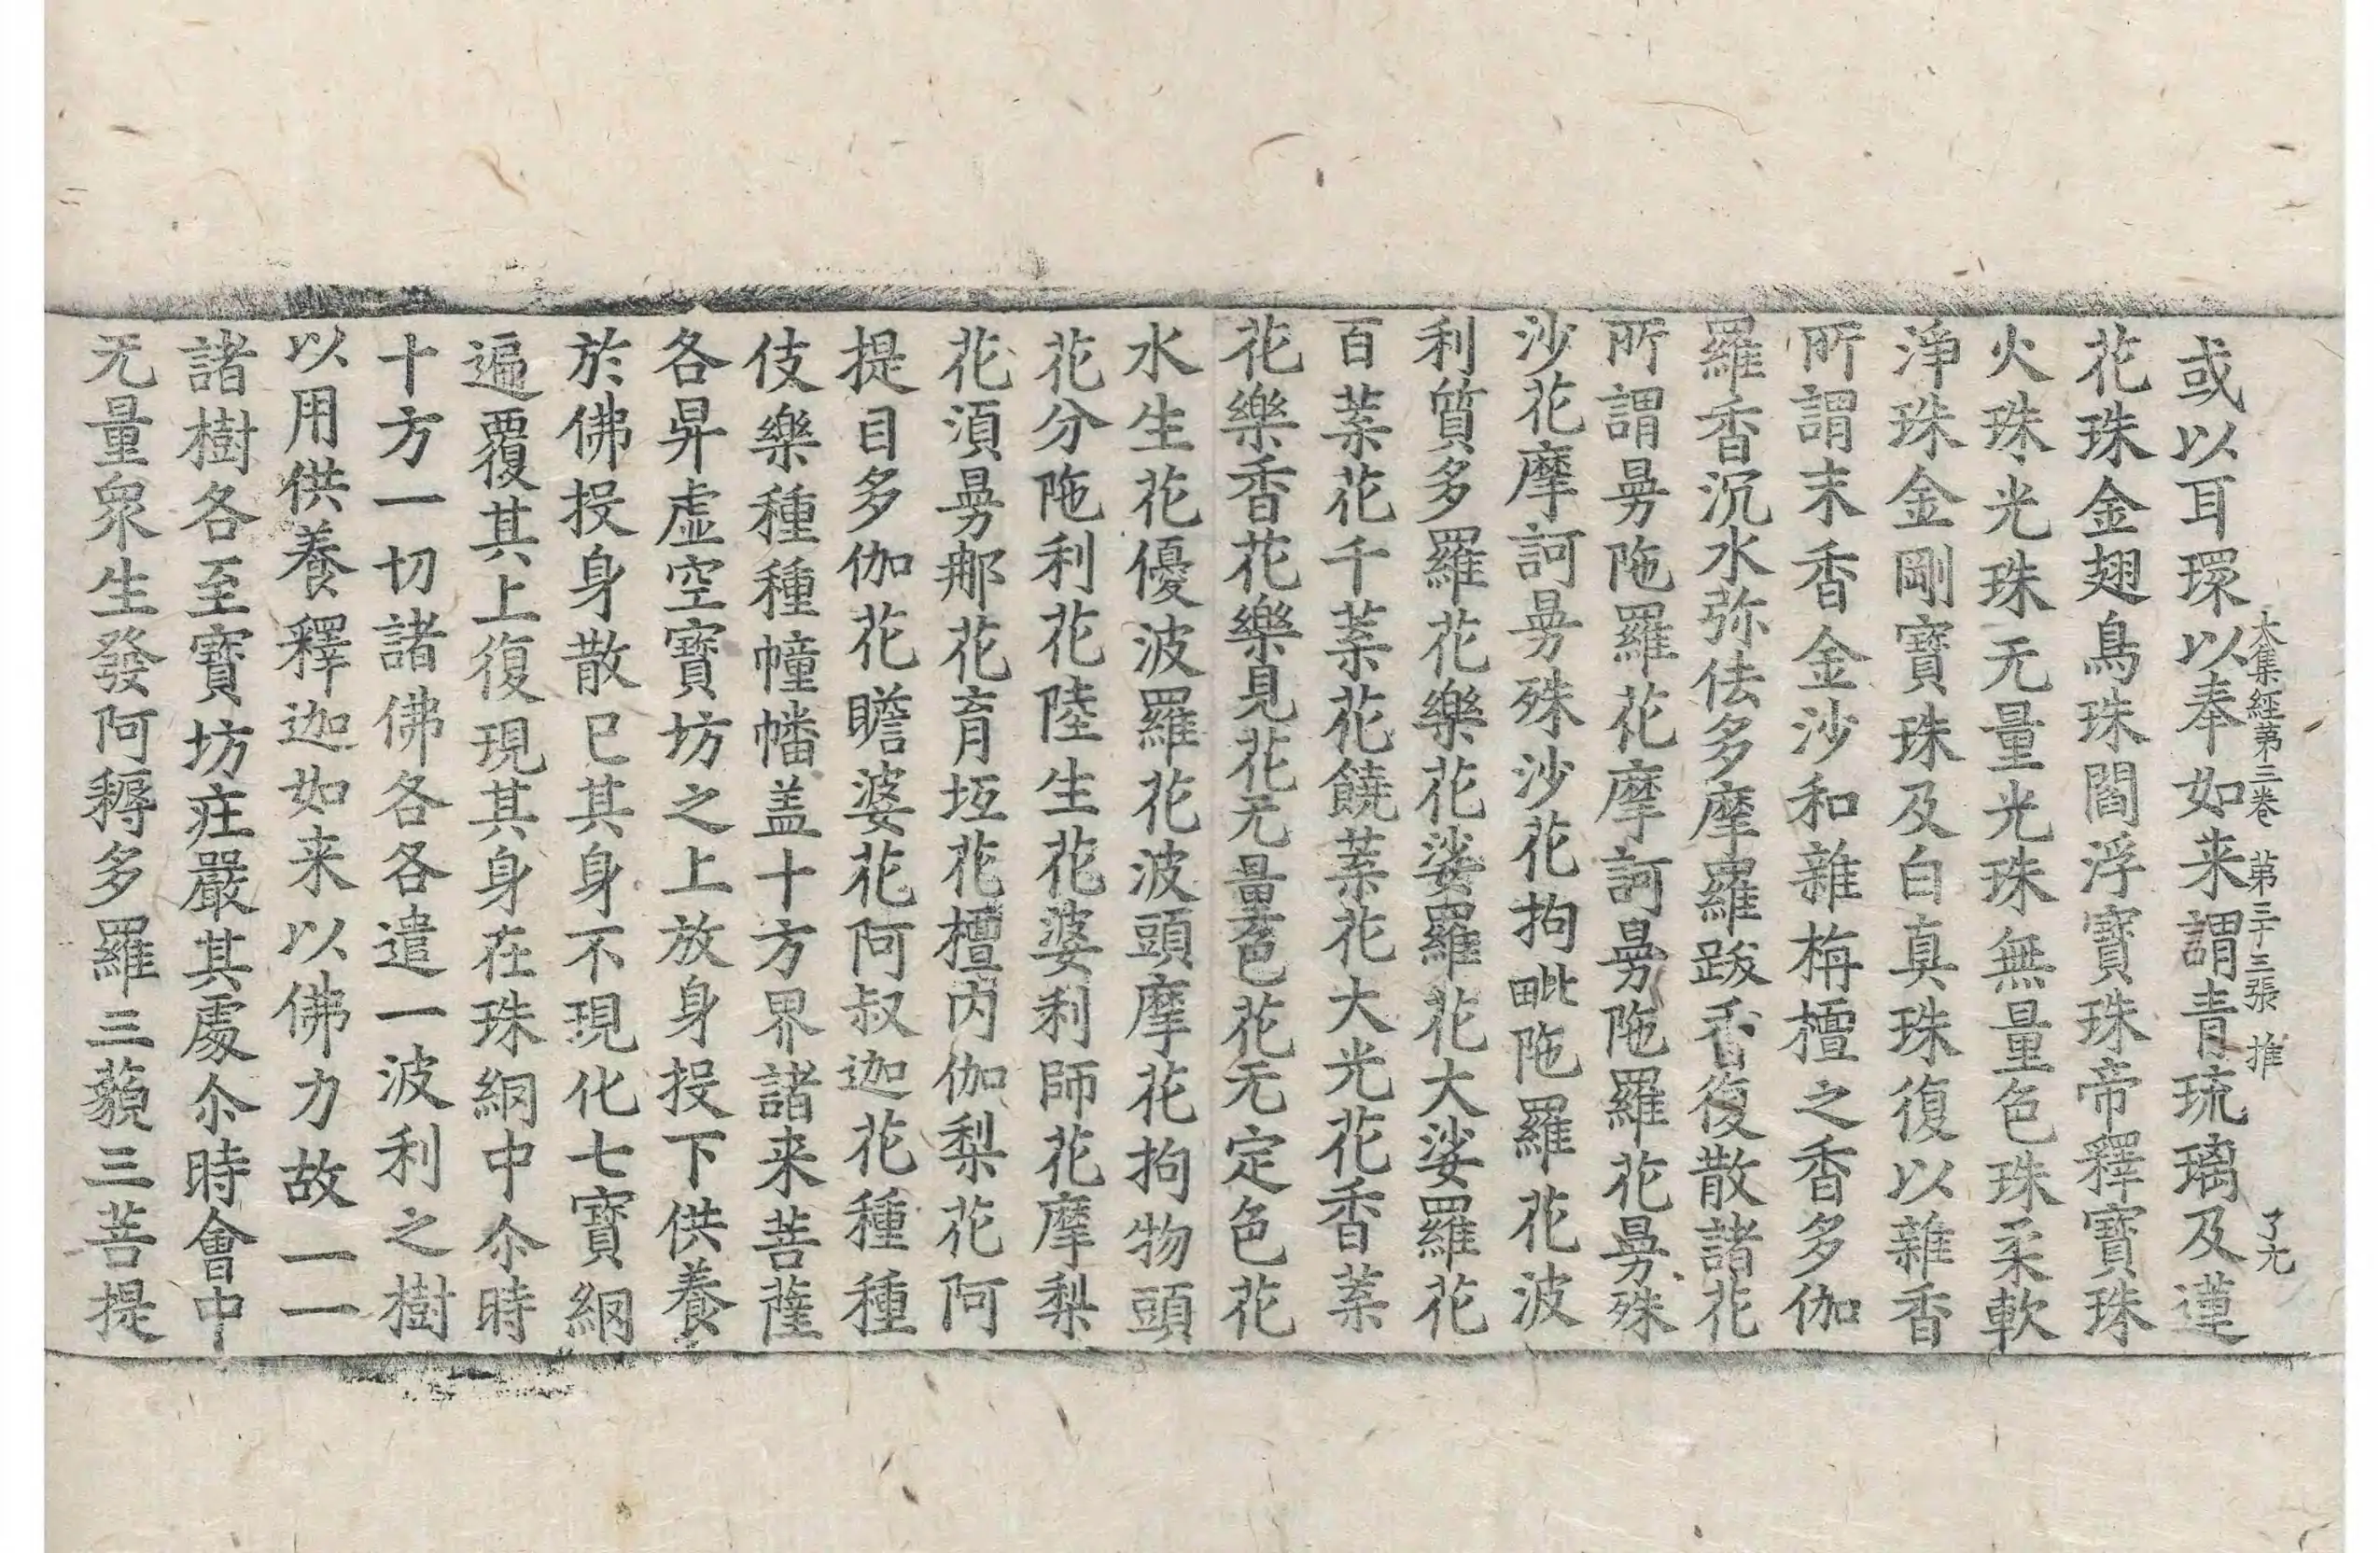 大集經第三卷 第三十三張 推 了元
或以耳環以奉如来謂青琉璃及蓮
花珠金翅鳥珠閻浮寶珠帝釋寶珠
火珠光珠无量光珠無量色珠柔軟
淨珠金剛寶珠及白真珠復以雜香
所謂末香金沙和雜栴檀之香多伽
羅香沉水弥佉多摩羅跋香復散諸花
所謂曼陁羅花摩訶曼陁羅花曼殊
沙花摩訶曼殊沙花拘毗陁羅花波
利質多羅花樂花娑羅花大娑羅花
百葉花千葉花饒葉花大光花香葉
花樂香花樂見花无量色花无定色花
水生花優波羅花波頭摩花拘物頭
花分陁利花陸生花婆利師花摩梨
花湏曼那花育坻花檀内伽梨花阿
提目多伽花瞻婆花阿叔迦花種種
伎樂種種幢幡盖十方界諸来菩薩
各昇虛空寶坊之上放身投下供養
於佛投身散已其身不現化七寶網
遍覆其上復現其身在珠網中尒時
十方一切諸佛各各遣一波利之樹
以用供養釋迦如来以佛力故一一
諸樹各至寶坊莊嚴其處尒時會中
无量衆生發阿耨多羅三藐三菩提